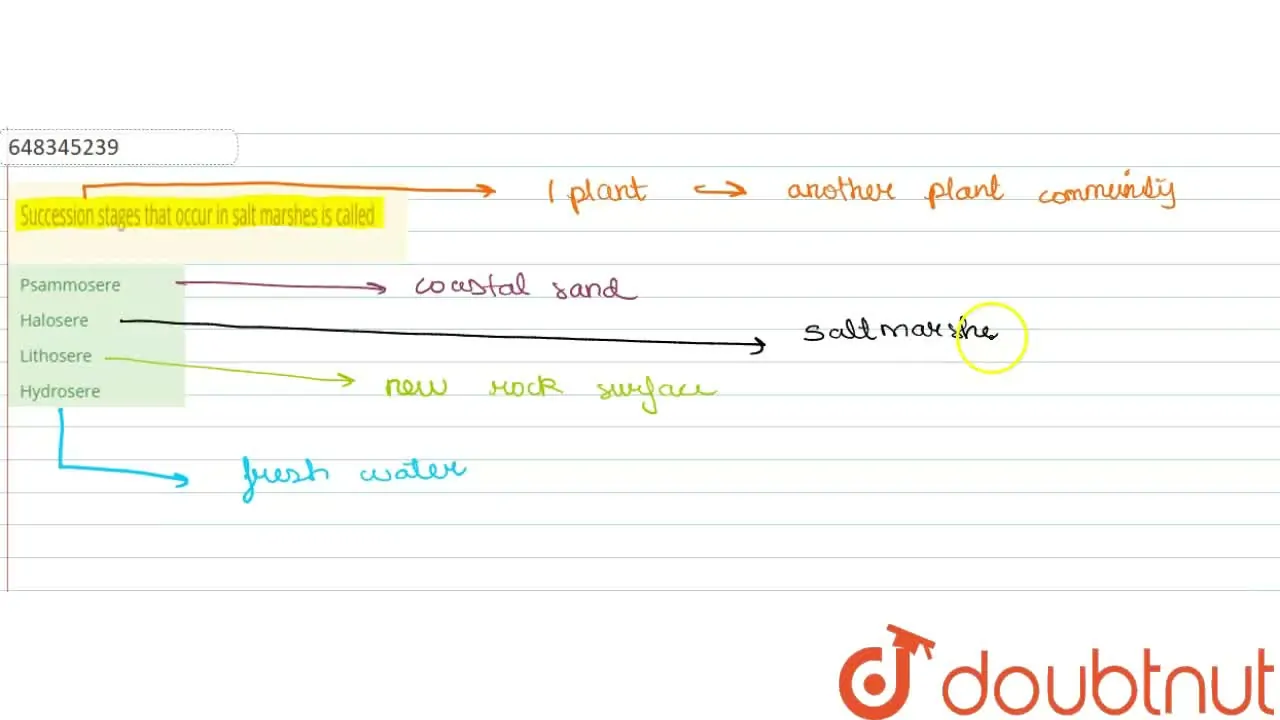 648345239
1 plant → another plant community
Succession stages that occur in salt marshes is called
Psammosere → coastal sand
Halosere → saltmarshe
Lithosere → new rock surface
Hydrosere
fresh water
doubtnut